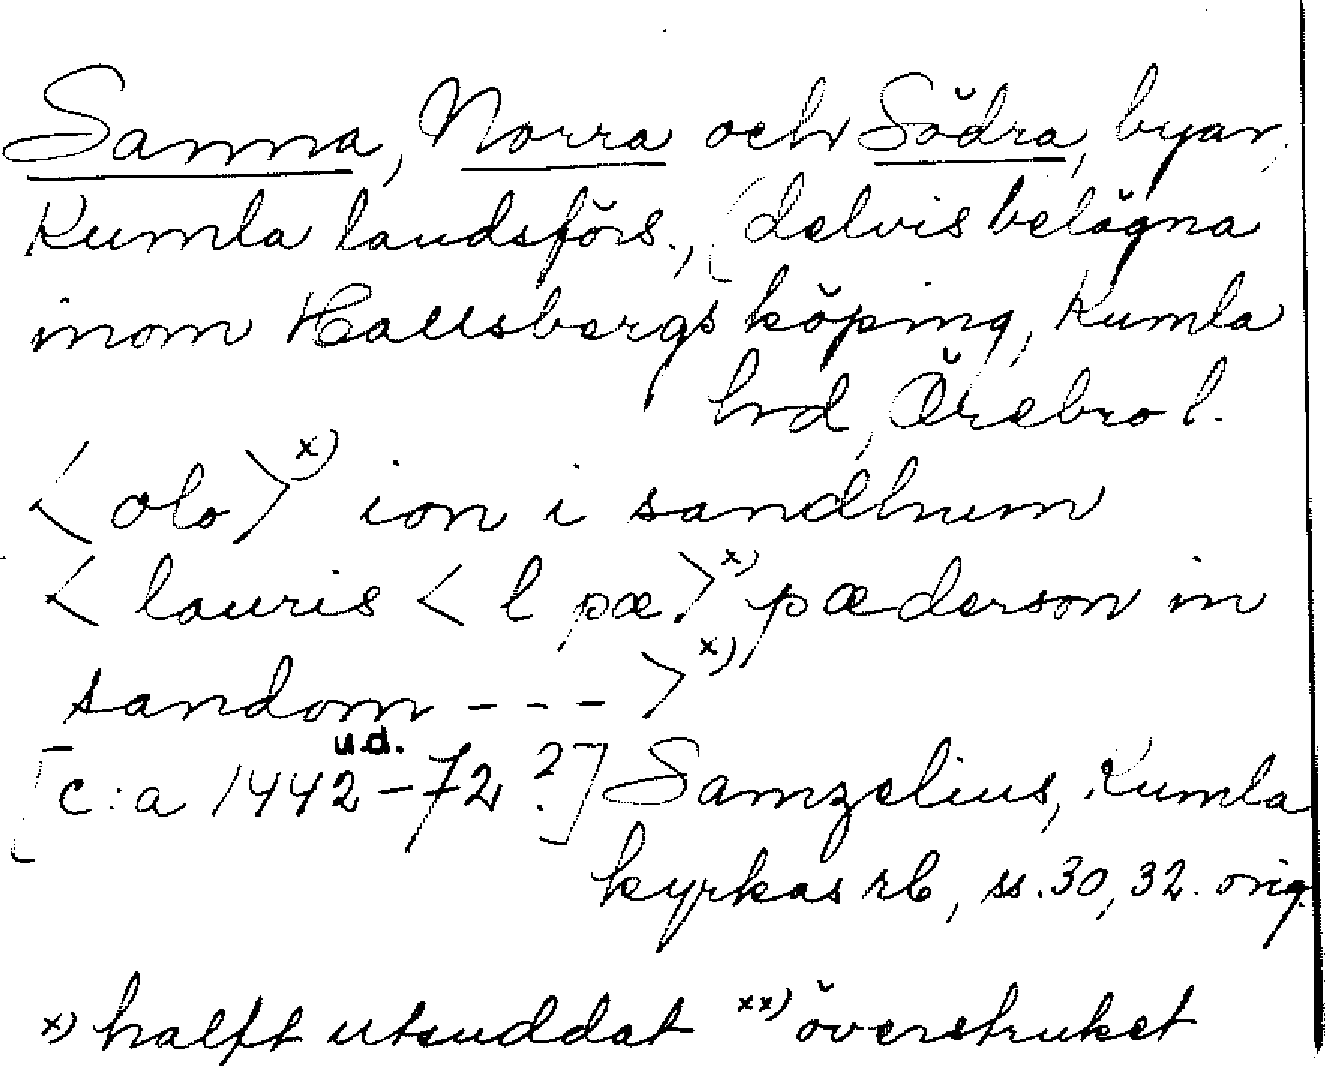 Sanna, Norra och Södra, byar,
Kumla landsförs., (delvis belägna
inom Hallsbergs köping, Kumla
hrd, Örebro l.
< olo >x) ion i sandhum
< lauris < l pæ >x) pæderson in
sandom - - - >x)
u.d.
[c:a 1442-72 ?] Samzelius, Kumla
kyrkas rb, ss. 30, 32. orig.
x) halft utsuddat xx) överstruket